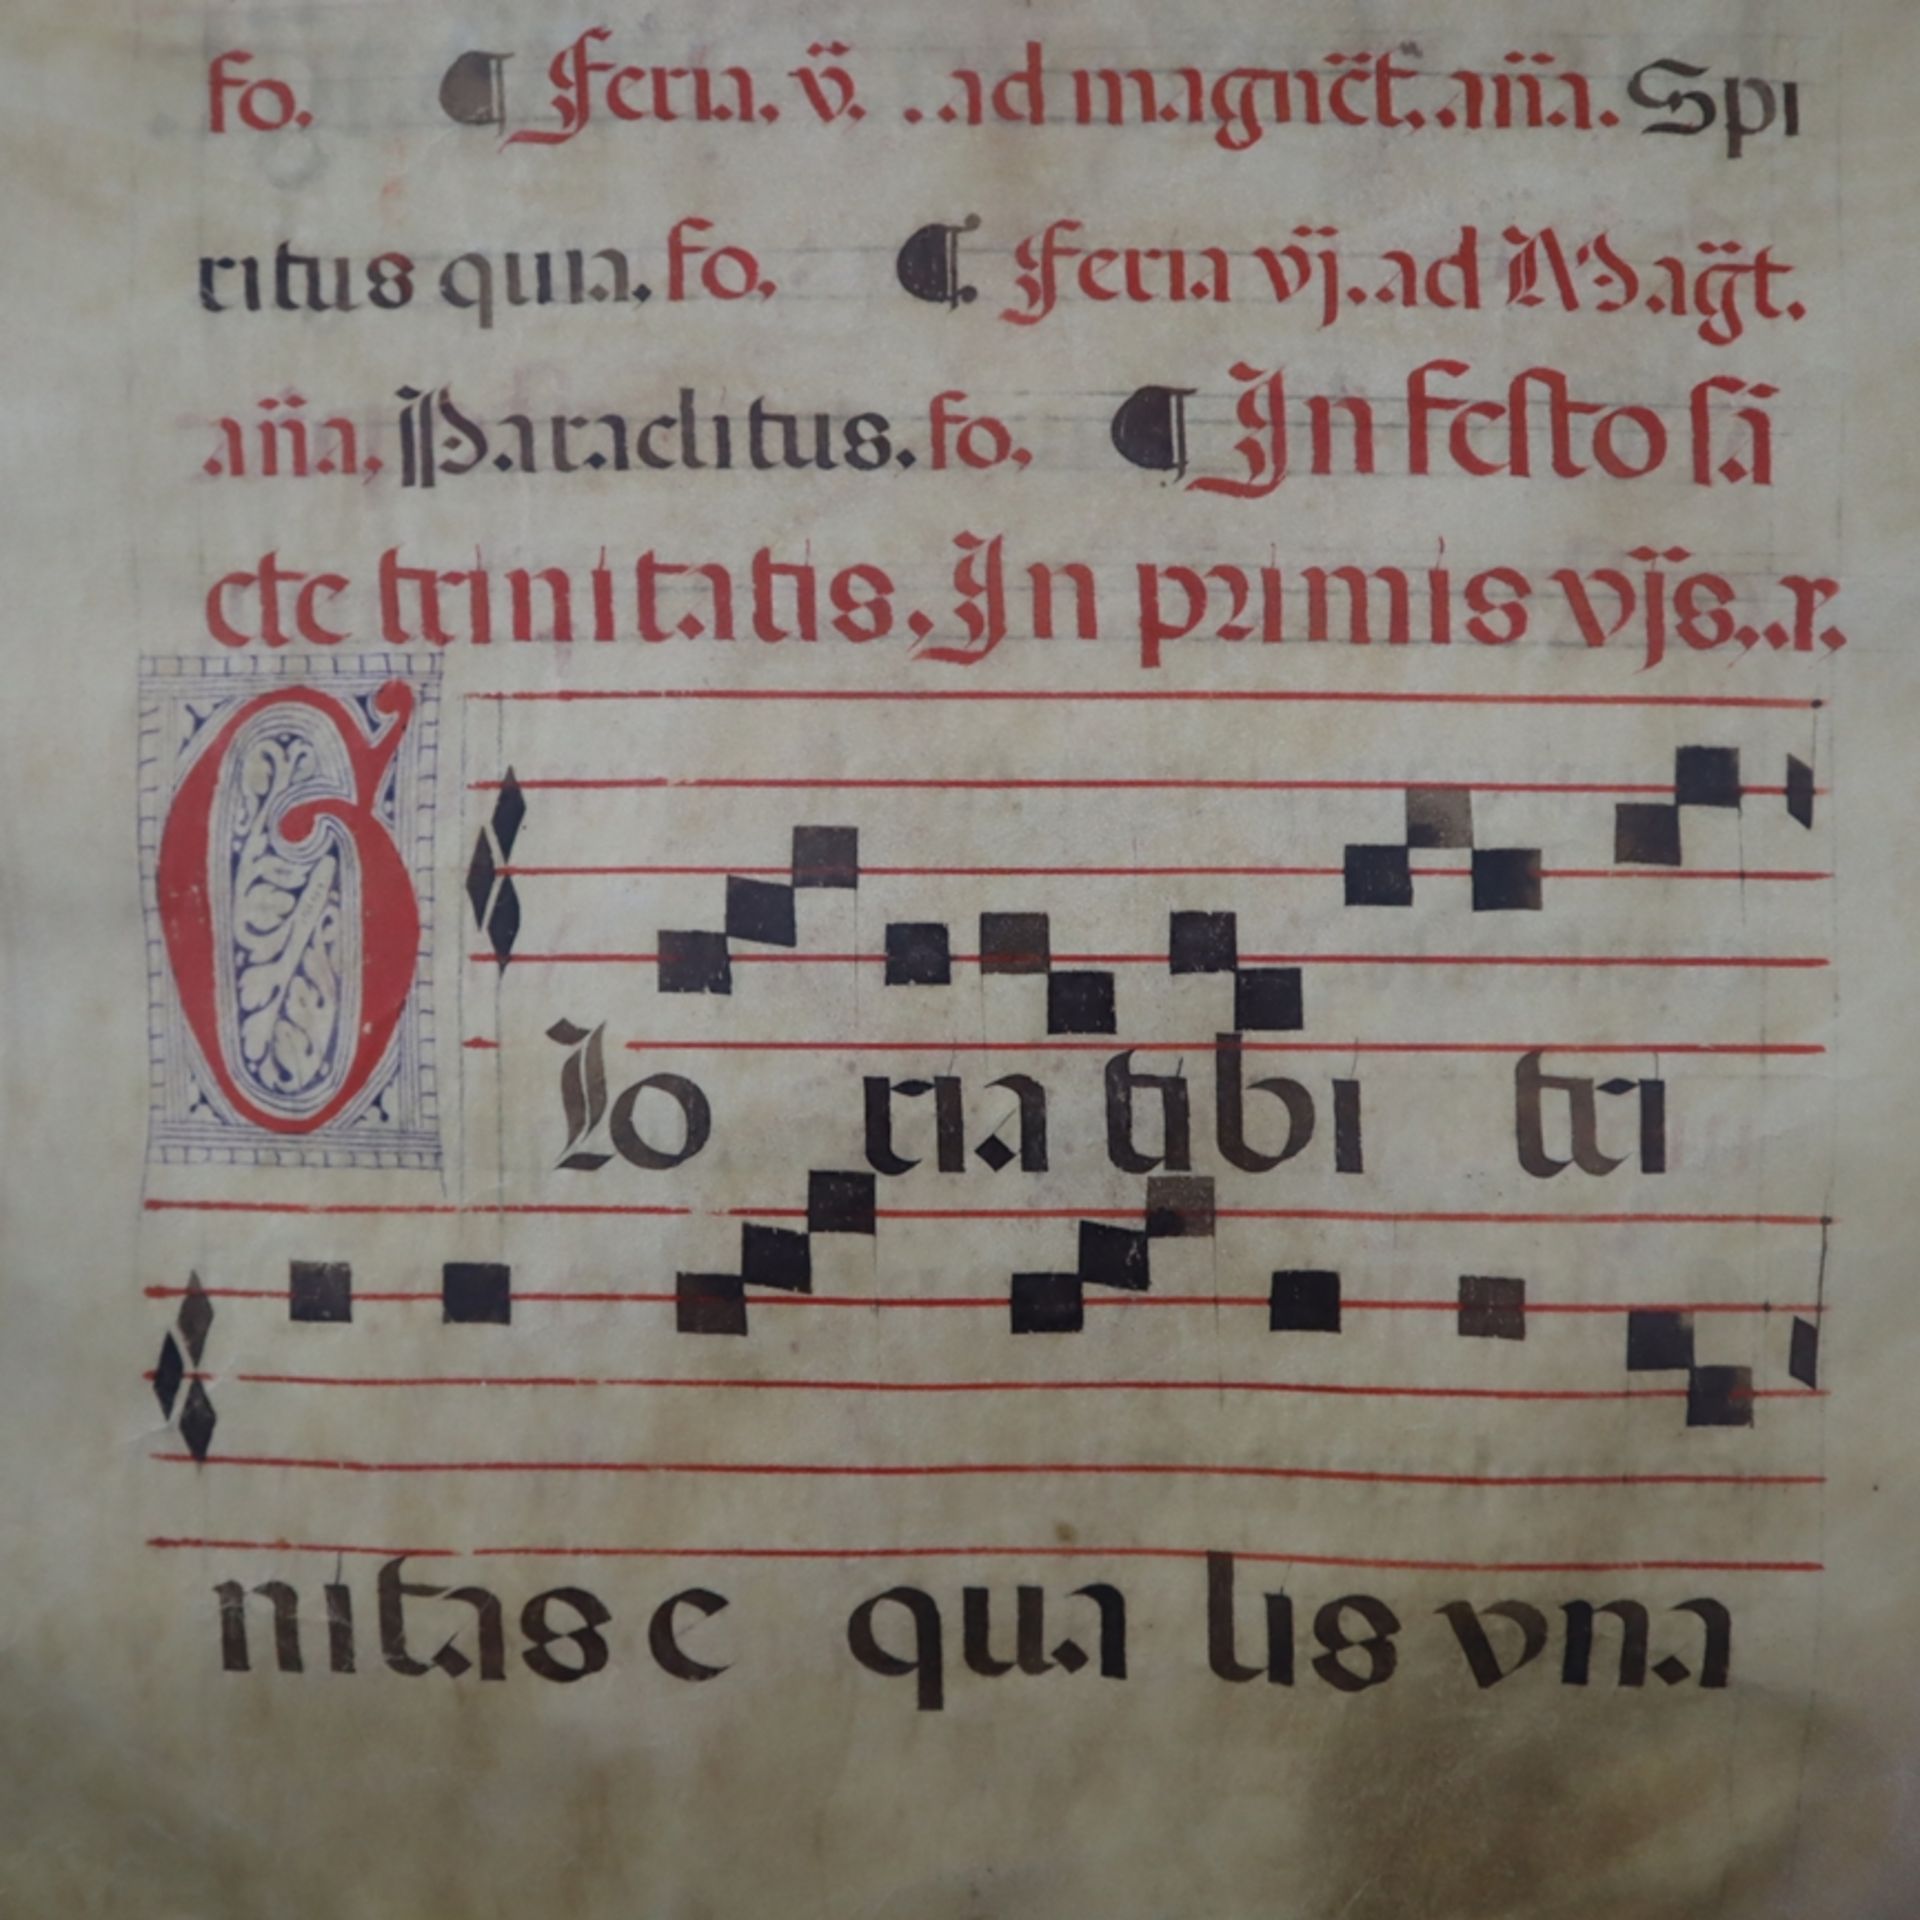 fo. ¶ Feria. v̈. . ad magnc̈t. an̈a. Spi
ritus quia. fo. ¶. Feria vj. ad Mag̈t.
an̈a. Paraclitus. fo. ¶ In festo sā
cte trinitatis. In primis vj̈s. . r.
Glo ria tibi tri
nitas e qua lis vna